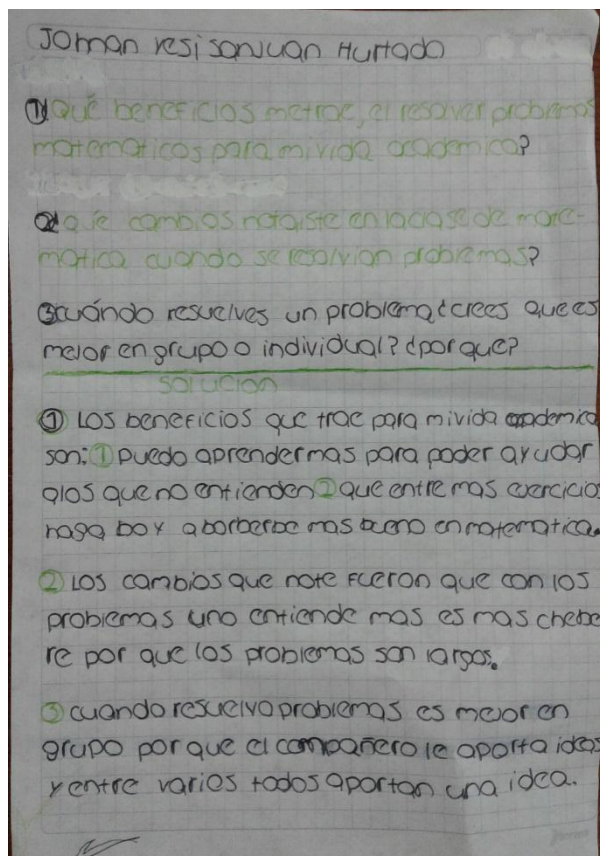 Joman resi sanjuan Hurtado
① Qué beneficios metrae, el resolver problemas
matematicos para mi vida academica?
② que cambios notaiste en laclase de mate-
matica cuando se resolvian problemas?
③ cuándo resuelves un problema ¿crees que es
mejor en grupo o individual? ¿por que?
solucion
① Los beneficios que trae para mi vida academica
son: ① puedo aprender mas para poder ayudar
alos que no entienden ② que entre mas exercicio
haga boy a borberbe mas bueno en matematica.
② Los cambios que note fueron que con los
problemas uno entiende mas es mas chebe
re por que los problemas son largos.
③ cuando resuelvo problemas es mejor en
grupo por que el compañero le aporta ideas
y entre varios todos aportan una idea.